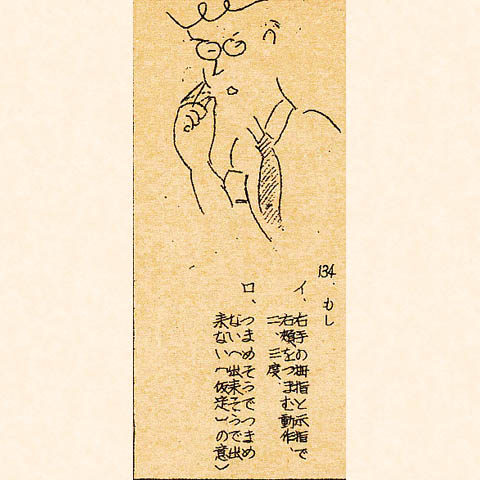 134. もし
イ、右手の拇指と示指で
右頬をつまむ動作、
二、三度、
ロ、つまめそうでつまめ
ない(出来そうで出
来ない(仮定)の意)